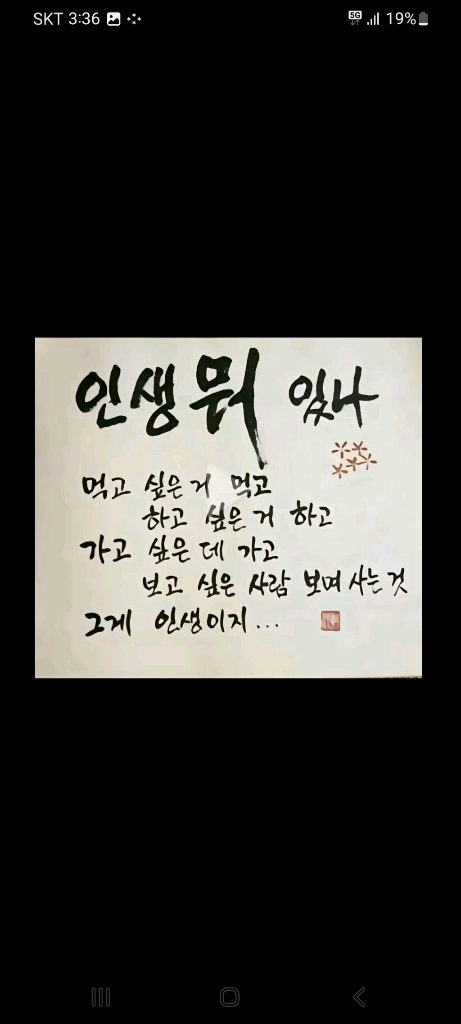 SKT 3:36 5G 19%
인생 뭐 있나
먹고 싶은거 먹고
하고 싶은 거 하고
가고 싶은 데 가고
보고 싶은 사람 보며 사는 것
그게 인생이지...